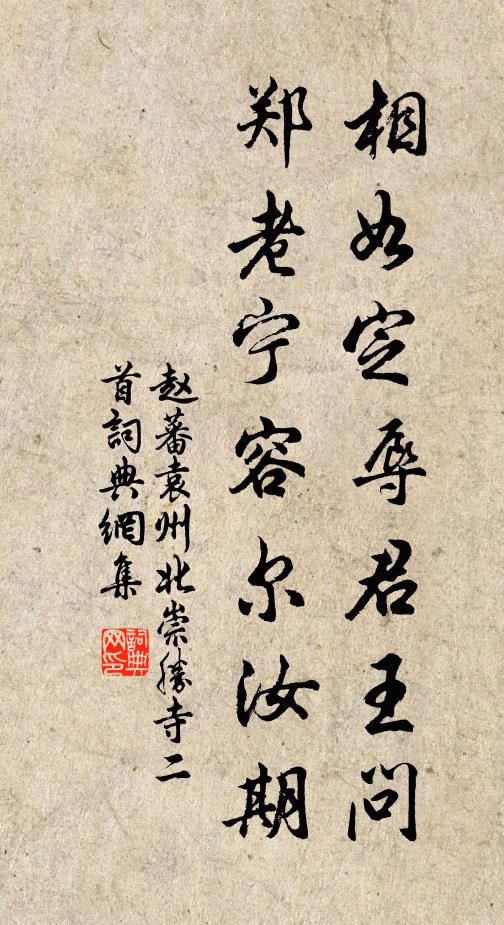 相如定辱君王问
郑老宁容尔汝期
赵蕃袁州北崇胜寺二
首词典網集
詞典
网印